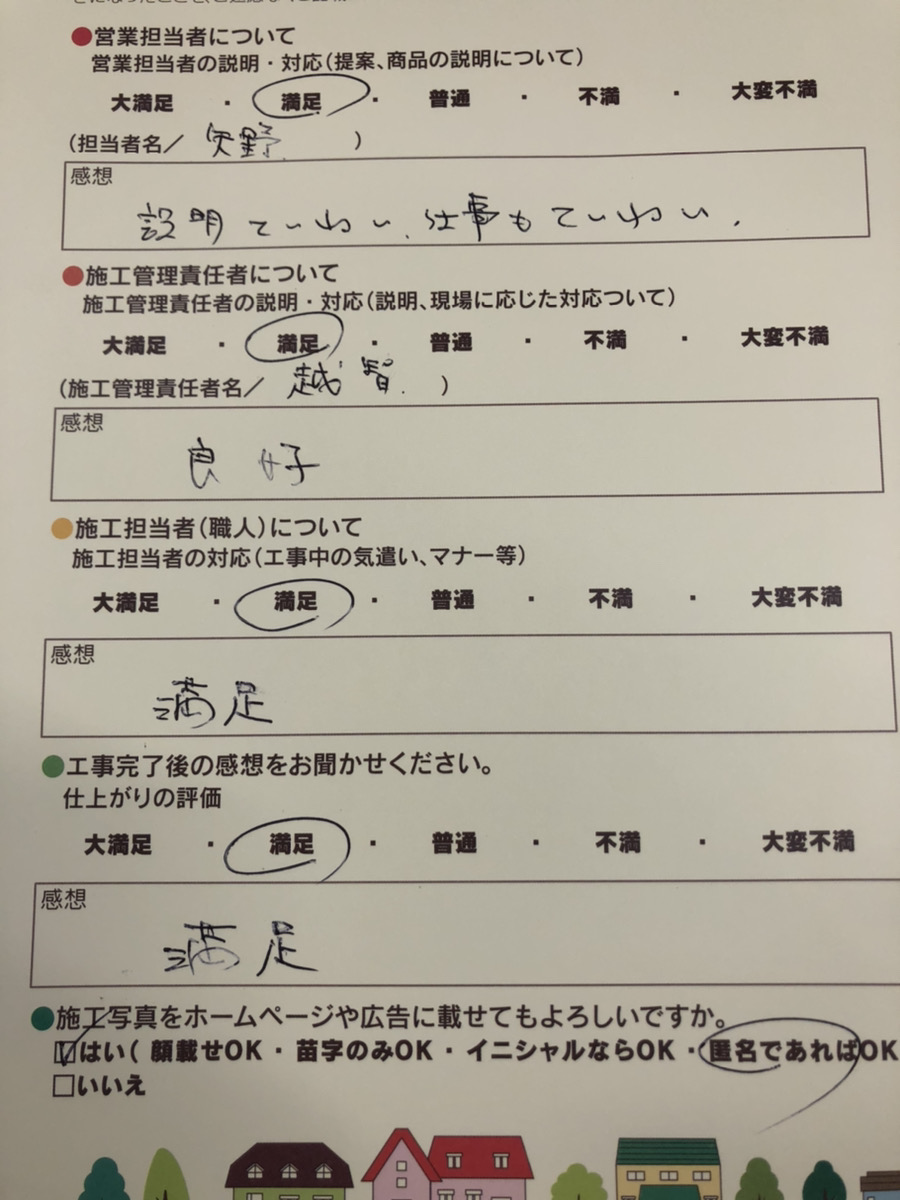 ●営業担当者について
営業担当者の説明・対応(提案、商品の説明について)
大満足 ・ 満足 ・ 普通 ・ 不満 ・ 大変不満
(担当者名／ 矢野 )
感想
説明ていねい、仕事もていねい.
●施工管理責任者について
施工管理責任者の説明・対応(説明、現場に応じた対応ついて)
大満足 ・ 満足 ・ 普通 ・ 不満 ・ 大変不満
(施工管理責任者名／ 越智. )
感想
良好
●施工担当者(職人)について
施工担当者の対応(工事中の気遣い、マナー等)
大満足 ・ 満足 ・ 普通 ・ 不満 ・ 大変不満
感想
満足
●工事完了後の感想をお聞かせください。
仕上がりの評価
大満足 ・ 満足 ・ 普通 ・ 不満 ・ 大変不満
感想
満足
●施工写真をホームページや広告に載せてもよろしいですか。
☑はい( 顔載せOK ・ 苗字のみOK ・ イニシャルならOK ・ 匿名であればOK
□いいえ